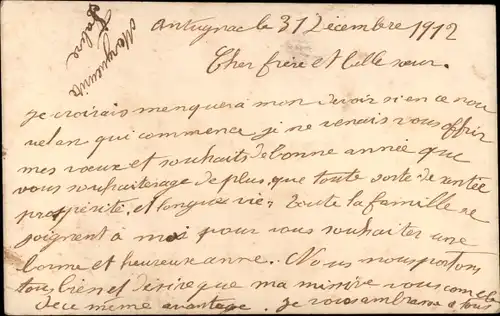 Marguerite
Fabre
Antugnac le 31 Decembre 1912
Cher frère et belle sœur.
Je croirais menquer a mon devoir si en ce nou
vel an qui commence, je ne venais vous offrir
mes vœux et souhaits de bonne année que
vous souhaiterage de plus, que toute sorte de
prospérité, et longue vie, Toute la famille se
joignent à moi pour vous souhaiter une
bonne et heureuse anne. Nous nous portons
tous bien et désire que ma misive vous
de ce même avantage. Je vous ambrasse a tous